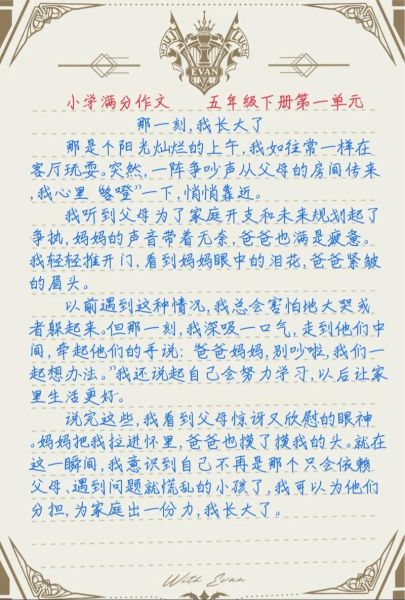 EVAN
小学满分作文 五年级下册第一单元
那一刻,我长大了
那是个阳光灿烂的上午,我如往常一样在
客厅玩耍。突然,一阵争吵声从父母的房间传来
,我心里"咯噔"一下,悄悄靠近。
我听到父母为了家庭开支和未来规划起了
争执,妈妈的声音带着无奈,爸爸也满是疲惫。
我轻轻推开门,看到妈妈眼中的泪花,爸爸紧皱
的眉头。
以前遇到这种情况,我总会害怕地大哭或
者躲起来。但那一刻,我深吸一口气,走到他们中
间,牵起他们的手说:"爸爸妈妈,别吵啦,我们一
起想办法。"我还说起自己会努力学习,以后让家
里生活更好。
说完这些,我看到父母惊讶又欣慰的眼神
。妈妈把我拉进怀里,爸爸也摸了摸我的头。就在
这一瞬间,我意识到自己不再是那个只会依赖
父母、遇到问题就慌乱的小孩了,我可以为他们
分担,为家庭出一份力,我长大了。
With Evan